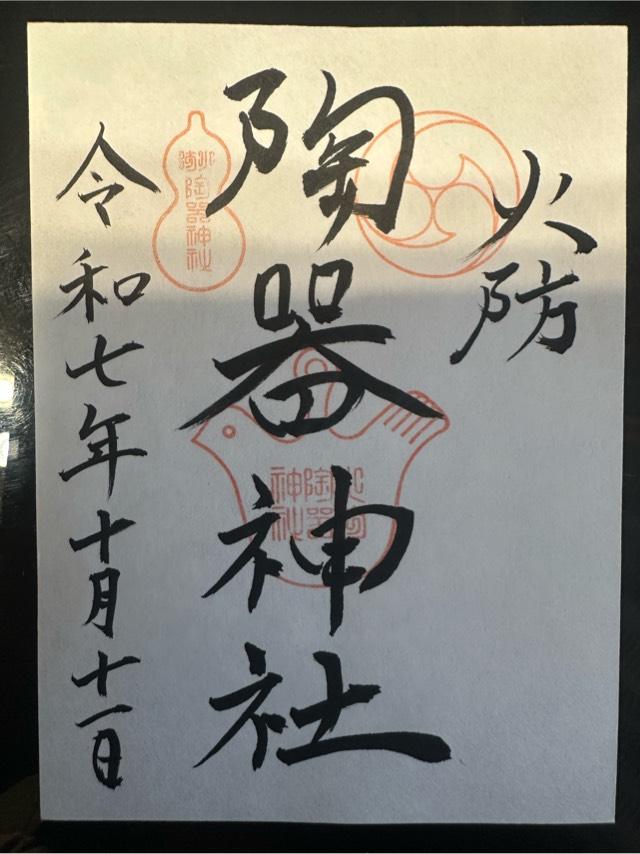 火防
陶器神社
令和七年十月十一日
水防
陶器神社
火防
陶器
神社